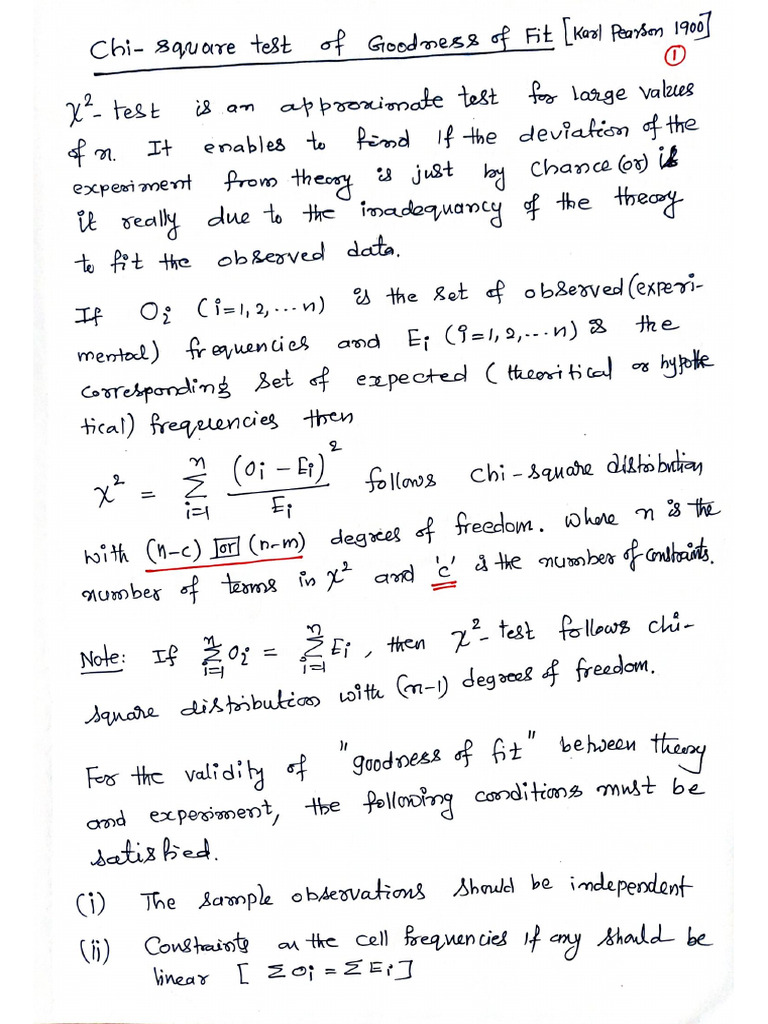 Chi-square test of Goodness of Fit [Karl Pearson 1900]
①
χ²-test is an approximate test for large values
of n. It enables to find If the deviation of the
experiment from theory is just by chance (or) is
it really due to the inadequancy of the theory
to fit the observed data.
If Oi (i=1,2,...n) is the set of observed (experi-
mental) frequencies and Ei (i=1,2,...n) is the
corresponding set of expected (theoritical or hypothe
tical) frequencies then
χ² = Σ_{i=1}^{n} (Oi - Ei)² / Ei follows chi-square distribution
with (n-c) or (n-m) degrees of freedom. where n is the
number of terms in χ² and 'c' is the number of constraints.
Note: If Σ_{i=1}^{n} Oi = Σ_{i=1}^{n} Ei, then χ²-test follows chi-
square distribution with (n-1) degrees of freedom.
For the validity of "goodness of fit" between theory
and experiment, the following conditions must be
satisfied.
(i) The sample observations should be independent
(ii) Constraints on the cell frequencies if any should be
linear [ΣOi = ΣEi]